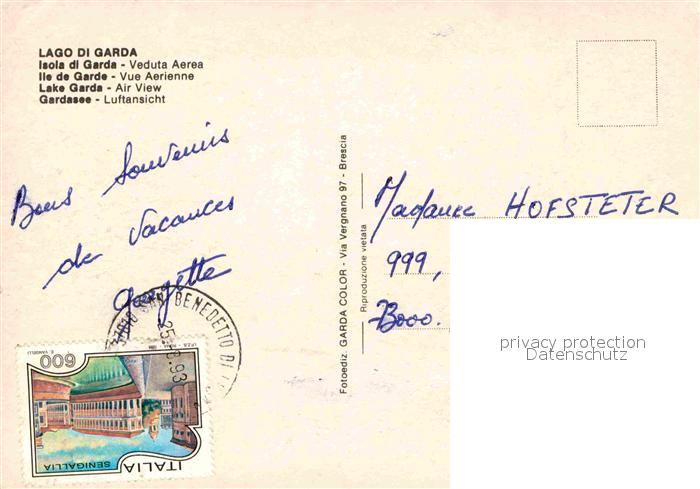 LAGO DI GARDA
Isola di Garda - Veduta Aerea
Ile de Garde - Vue Aerienne
Lake Garda - Air View
Gardasee - Luftansicht
Bons Souvenirs
de Vacances
Fotoediz. GARDA COLOR - Via Vergnano 97 - Brescia
Riproduzione vietata
Madame HOFSTETER
999,
B-3000.
privacy protection
Datenschutz
SAN BENEDETTO DI
93
600
ITALIA
SENIGALLIA